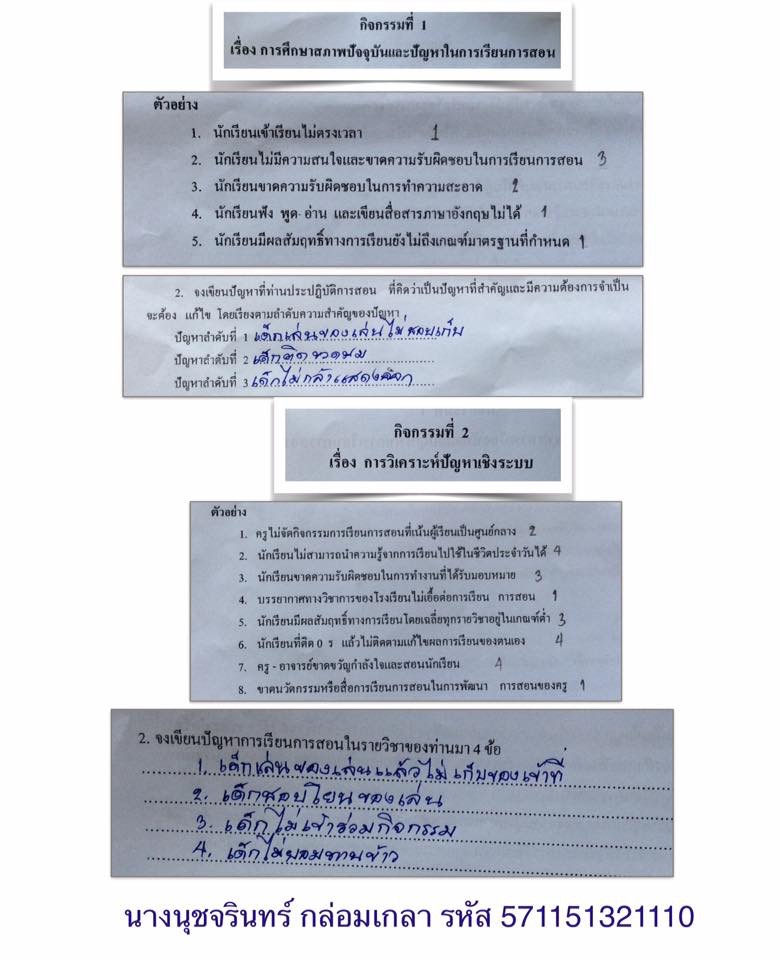 กิจกรรมที่ 1
เรื่อง การศึกษาสภาพปัจจุบันและปัญหาในการเรียนการสอน
ตัวอย่าง
1. นักเรียนเข้าเรียนไม่ตรงเวลา 1
2. นักเรียนไม่มีความสนใจและขาดความรับผิดชอบในการเรียนการสอน 3
3. นักเรียนขาดความรับผิดชอบในการทำความสะอาด 2
4. นักเรียนฟัง พูด-อ่าน และเขียนสื่อสารภาษาอังกฤษไม่ได้ 1
5. นักเรียนมีผลสัมฤทธิ์ทางการเรียนยังไม่ถึงเกณฑ์มาตรฐานที่กำหนด 1
2. จงเขียนปัญหาที่ท่านประปฏิบัติการสอน ที่คิดว่าเป็นปัญหาที่สำคัญและมีความต้องการจำเป็น
จะต้อง แก้ไข โดยเรียงตามลำดับความสำคัญของปัญหา
ปัญหาลำดับที่ 1 เด็กเล่นของเล่นไม่ชอบเก็บ
ปัญหาลำดับที่ 2 เด็กติดขวดนม
ปัญหาลำดับที่ 3 เด็กไม่กล้าแสดงออก
กิจกรรมที่ 2
เรื่อง การวิเคราะห์ปัญหาเชิงระบบ
ตัวอย่าง
1. ครูไม่จัดกิจกรรมการเรียนการสอนที่เน้นผู้เรียนเป็นศูนย์กลาง 2
2. นักเรียนไม่สามารถนำความรู้จากการเรียนไปใช้ในชีวิตประจำวันได้ 4
3. นักเรียนขาดความรับผิดชอบในการทำงานที่ได้รับมอบหมาย 3
4. บรรยากาศทางวิชาการของโรงเรียนไม่เอื้อต่อการเรียน การสอน 1
5. นักเรียนมีผลสัมฤทธิ์ทางการเรียนโดยเฉลี่ยทุกรายวิชาอยู่ในเกณฑ์ต่ำ 3
6. นักเรียนที่ติด 0 ร แล้วไม่ติดตามแก้ไขผลการเรียนของตนเอง 4
7. ครู - อาจารย์ขาดขวัญกำลังใจและสอนนักเรียน 4
8. ขาดนวัตกรรมหรือสื่อการเรียนการสอนในการพัฒนา การสอนของครู 1
2. จงเขียนปัญหาการเรียนการสอนในรายวิชาของท่านมา 4 ข้อ
1. เด็กเล่นของเล่นแล้วไม่เก็บของเข้าที่
2. เด็กชอบโยนของเล่น
3. เด็กไม่เข้าร่วมกิจกรรม
4. เด็กไม่ยอมทานข้าว
นางนุชจรินทร์ กล่อมเกลา รหัส 571151321110